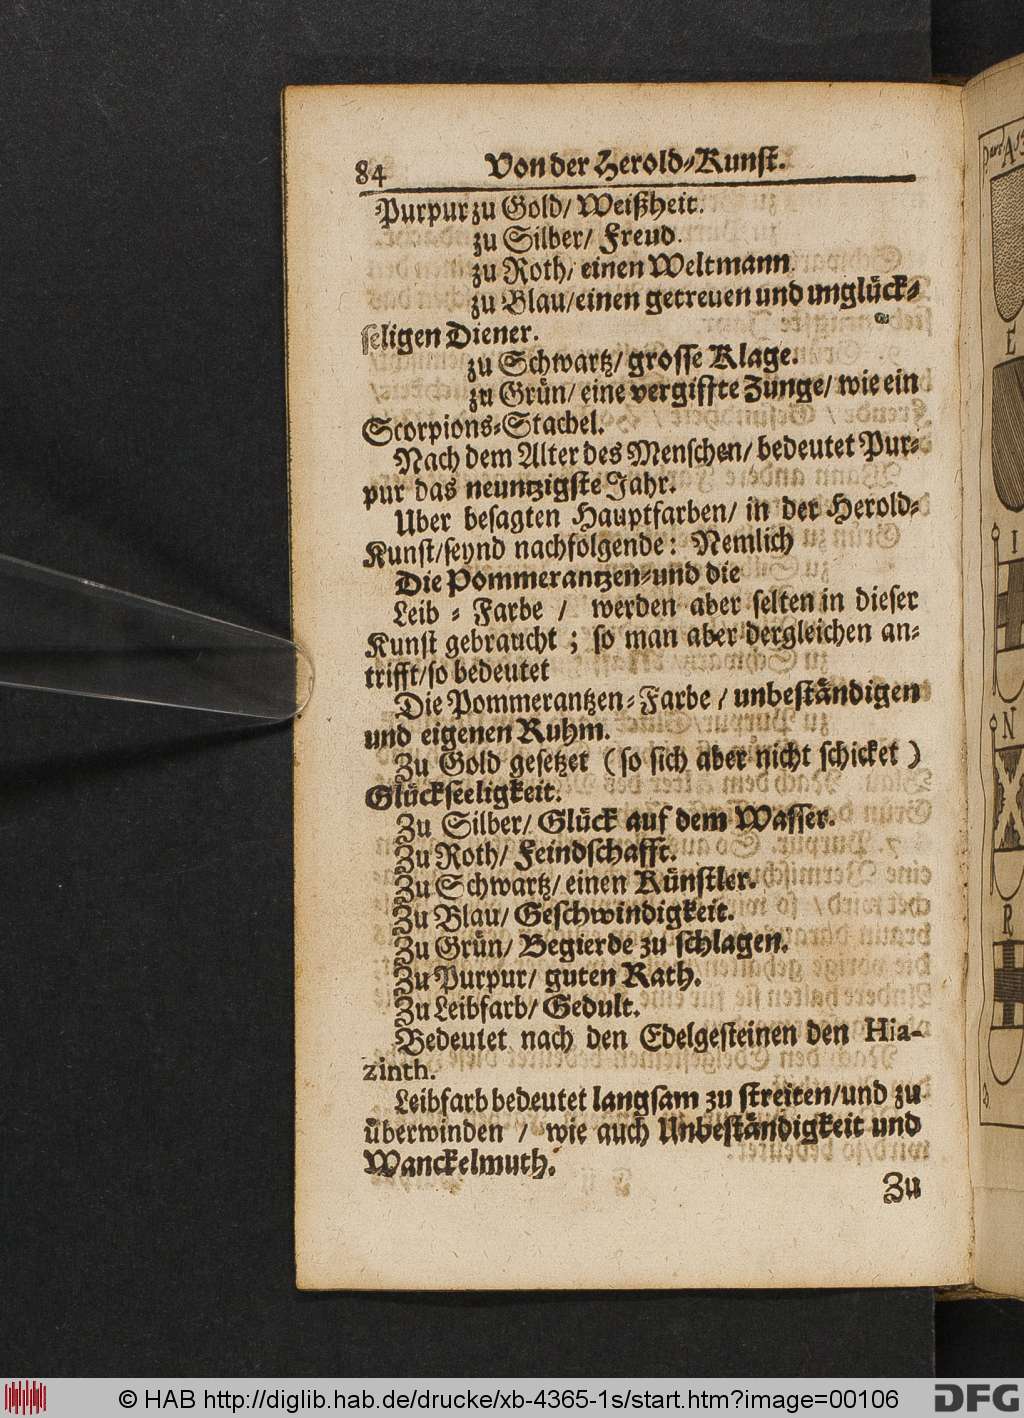 84 Von der Herold-Kunst.
Purpur zu Gold/ Weißheit.
zu Silber/ Freud.
zu Roth/ einen Weltmann.
zu Blau/ einen getreuen und unglück-
seligen Diener.
zu Schwartz/ grosse Klage.
zu Grün/ eine vergiftte Zunge/ wie ein
Scorpions-Stachel.
Nach dem Alter des Menschen/ bedeutet Pur-
pur das neuntzigste Jahr.
Uber besagten Hauptfarben/ in der Herold-
Kunst/ seynd nachfolgende: Nemlich
Die Pommerantzen-und die
Leib-Farbe / werden aber selten in dieser
Kunst gebraucht; so man aber dergleichen an-
trifft/ so bedeutet
Die Pommerantzen-Farbe / unbeständigen
und eigenen Ruhm.
Zu Gold gesetzet (so sich aber nicht schicket)
Glückseeligkeit.
Zu Silber/ Glück auf dem Wasser.
Zu Roth/ Feindschafft.
Zu Schwartz/ einen Künstler.
Zu Blau/ Geschwindigkeit.
Zu Grün/ Begierde zu schlagen.
Zu Purpur/ guten Rath.
Zu Leibfarb/ Gedult.
Bedeutet nach den Edelgesteinen den Hia-
zinth.
Leibfarb bedeutet langsam zu streiten/ und zu
überwinden / wie auch Unbeständigkeit und
Wanckelmuth.
Zu
E
I
N
R
© HAB http://diglib.hab.de/drucke/xb-4365-1s/start.htm?image=00106
DFG